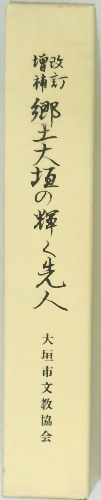 改訂
増補
郷土大垣の輝く先人
大垣市文教協会